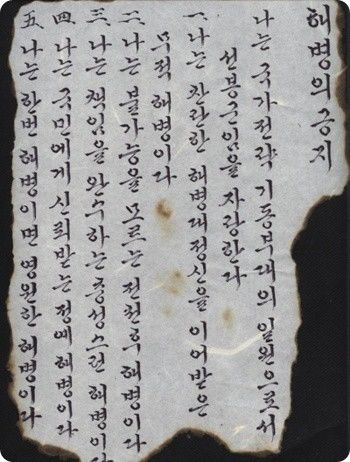 해병의 긍지
나는 국가전략 기동부대의 일원으로서
선봉군임을 자랑한다
一、나는 찬란한 해병대정신을 이어받은
무적 해병이다
二、나는 불가능을 모르는 전천후 해병이다
三、나는 책임을 완수하는 충성스런 해병이다
四、나는 국민에게 신뢰받는 정예 해병이다
五、나는 한번 해병이면 영원한 해병이다